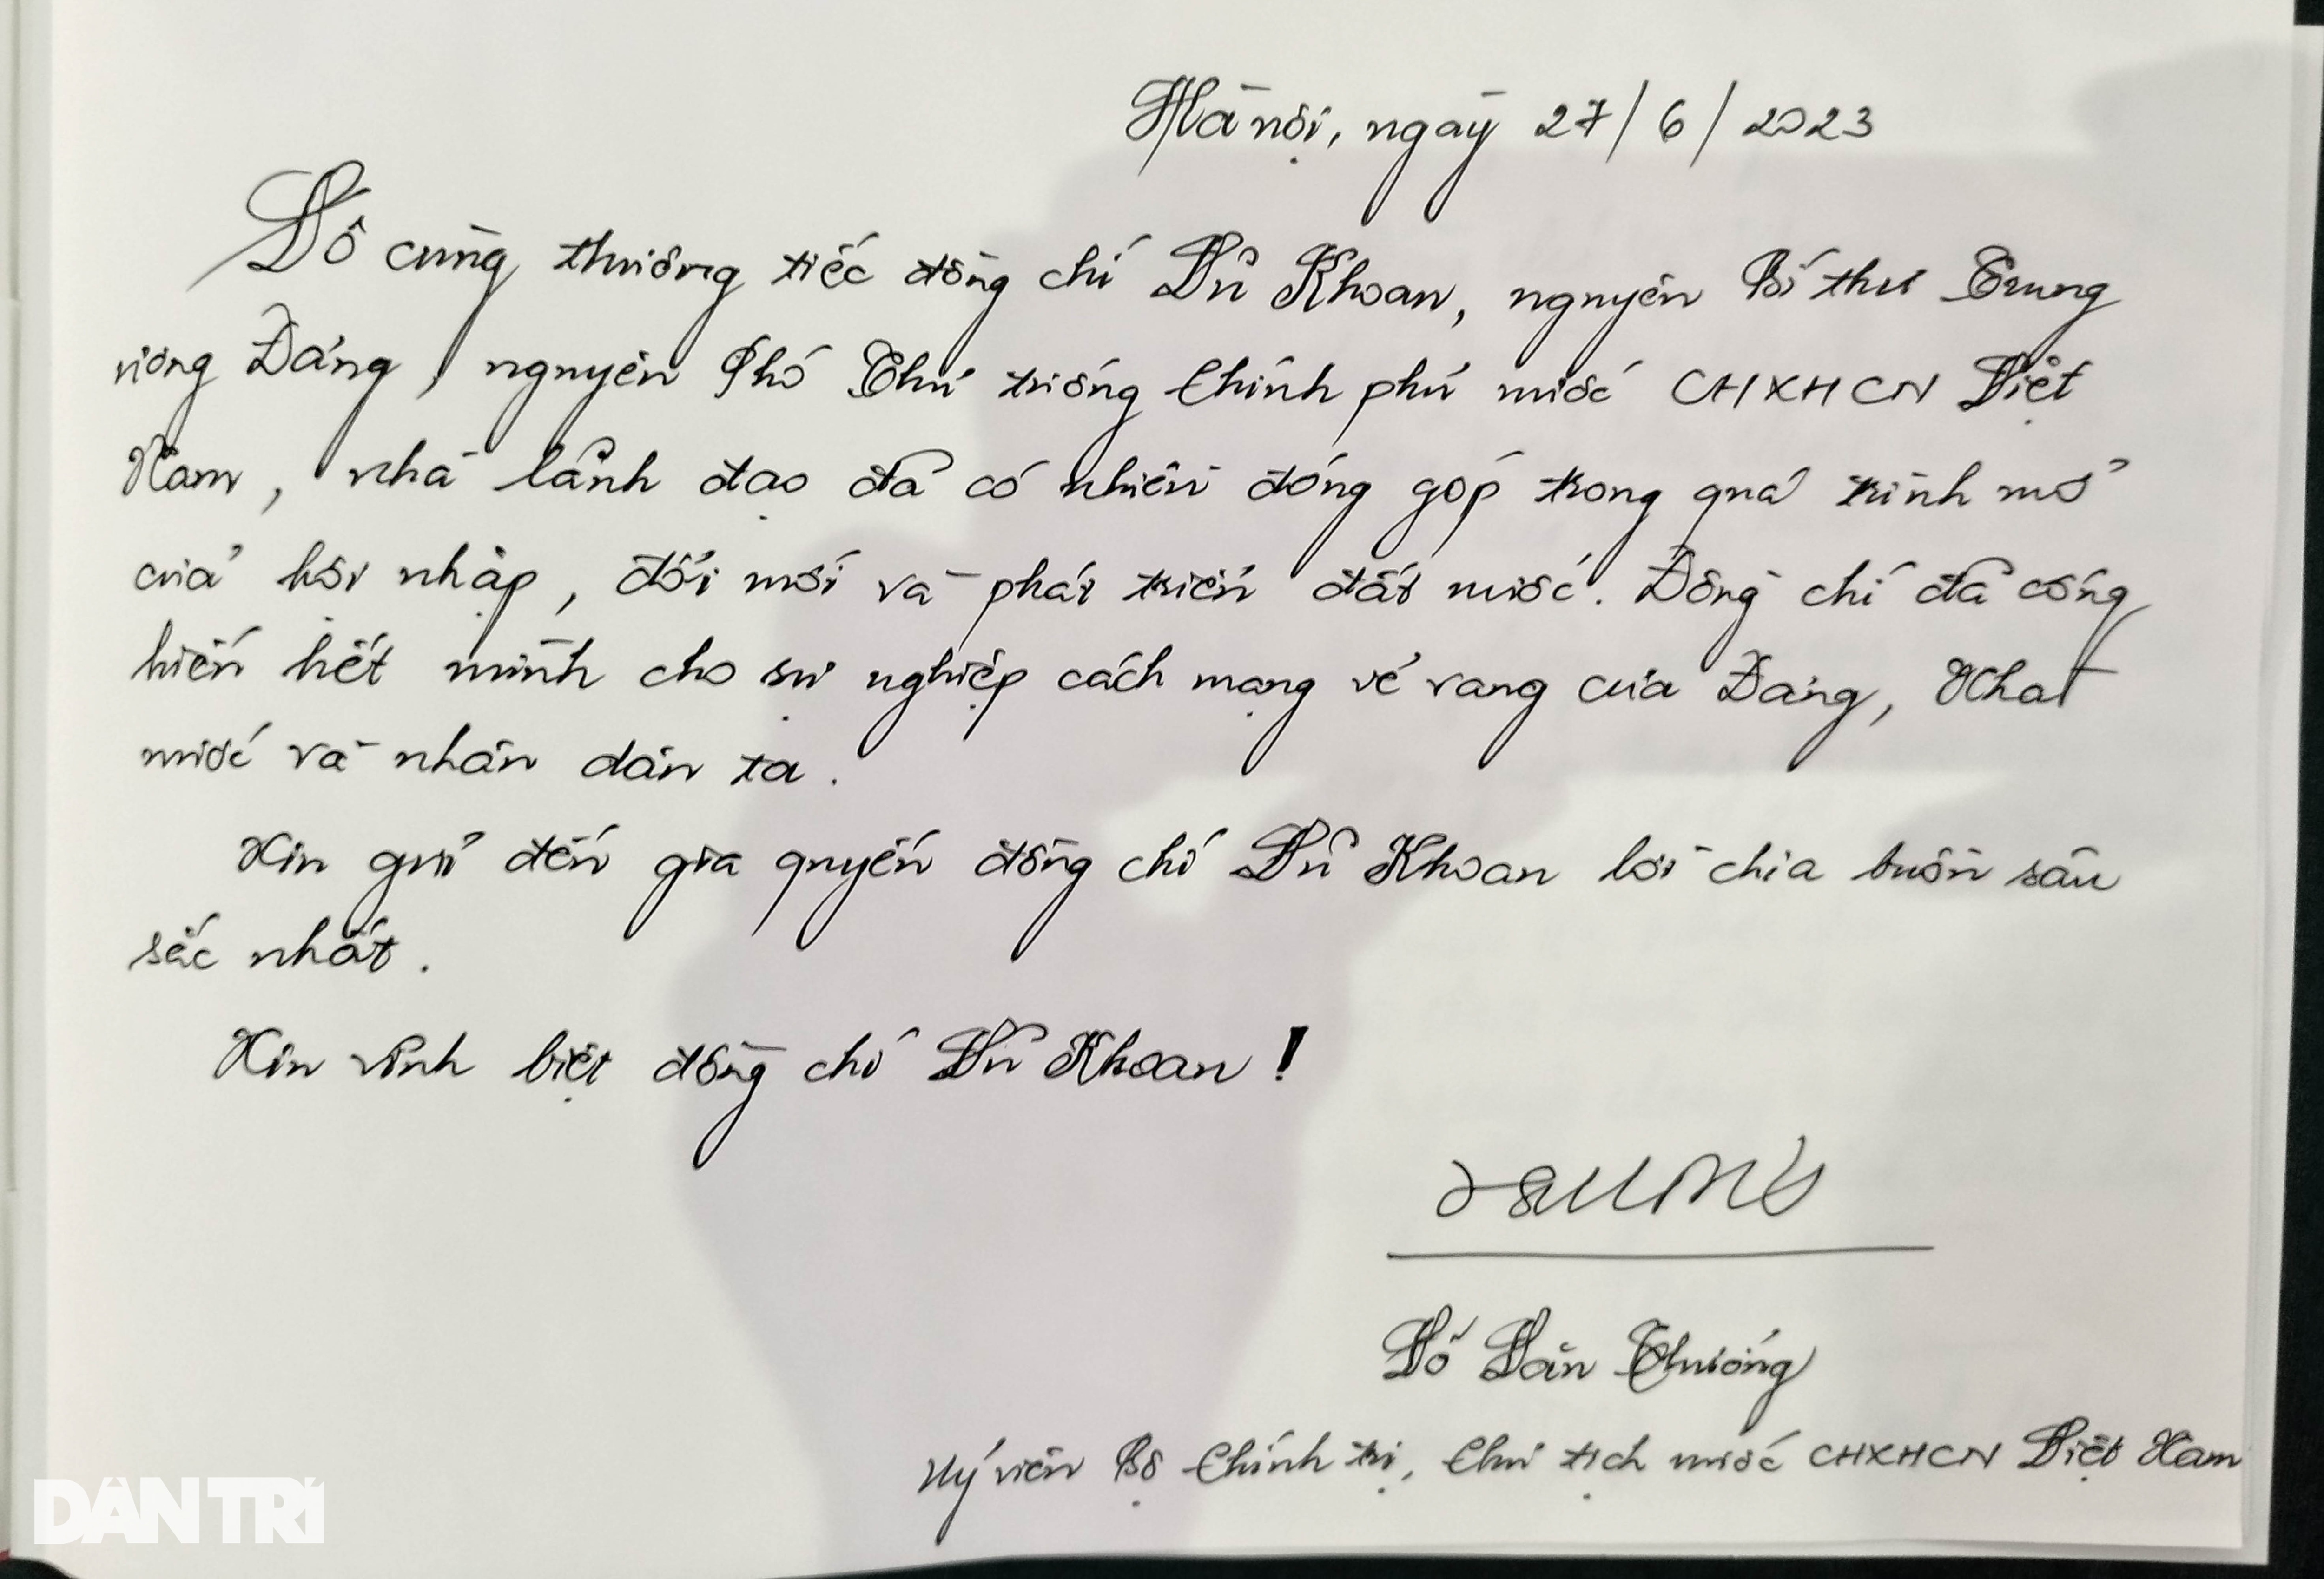 Hà nội, ngày 27/6/2023
Vô cùng thương tiếc đồng chí Vũ Khoan, nguyên Bí thư Trung
ương Đảng, nguyên Phó Thủ tướng Chính phủ nước CHXHCN Việt
Nam, nhà lãnh đạo đã có nhiều đóng góp trong quá trình mở
cửa hội nhập, đổi mới và phát triển đất nước. Đồng chí đã cống
hiến hết mình cho sự nghiệp cách mạng vẻ vang của Đảng, Nhà
nước và nhân dân ta.
Xin gửi đến gia quyến đồng chí Vũ Khoan lời chia buồn sâu
sắc nhất.
Xin vĩnh biệt đồng chí Vũ Khoan!
Võ Văn Thưởng
Uỷ viên Bộ Chính trị, Chủ tịch nước CHXHCN Việt Nam
DÂN TRÍ